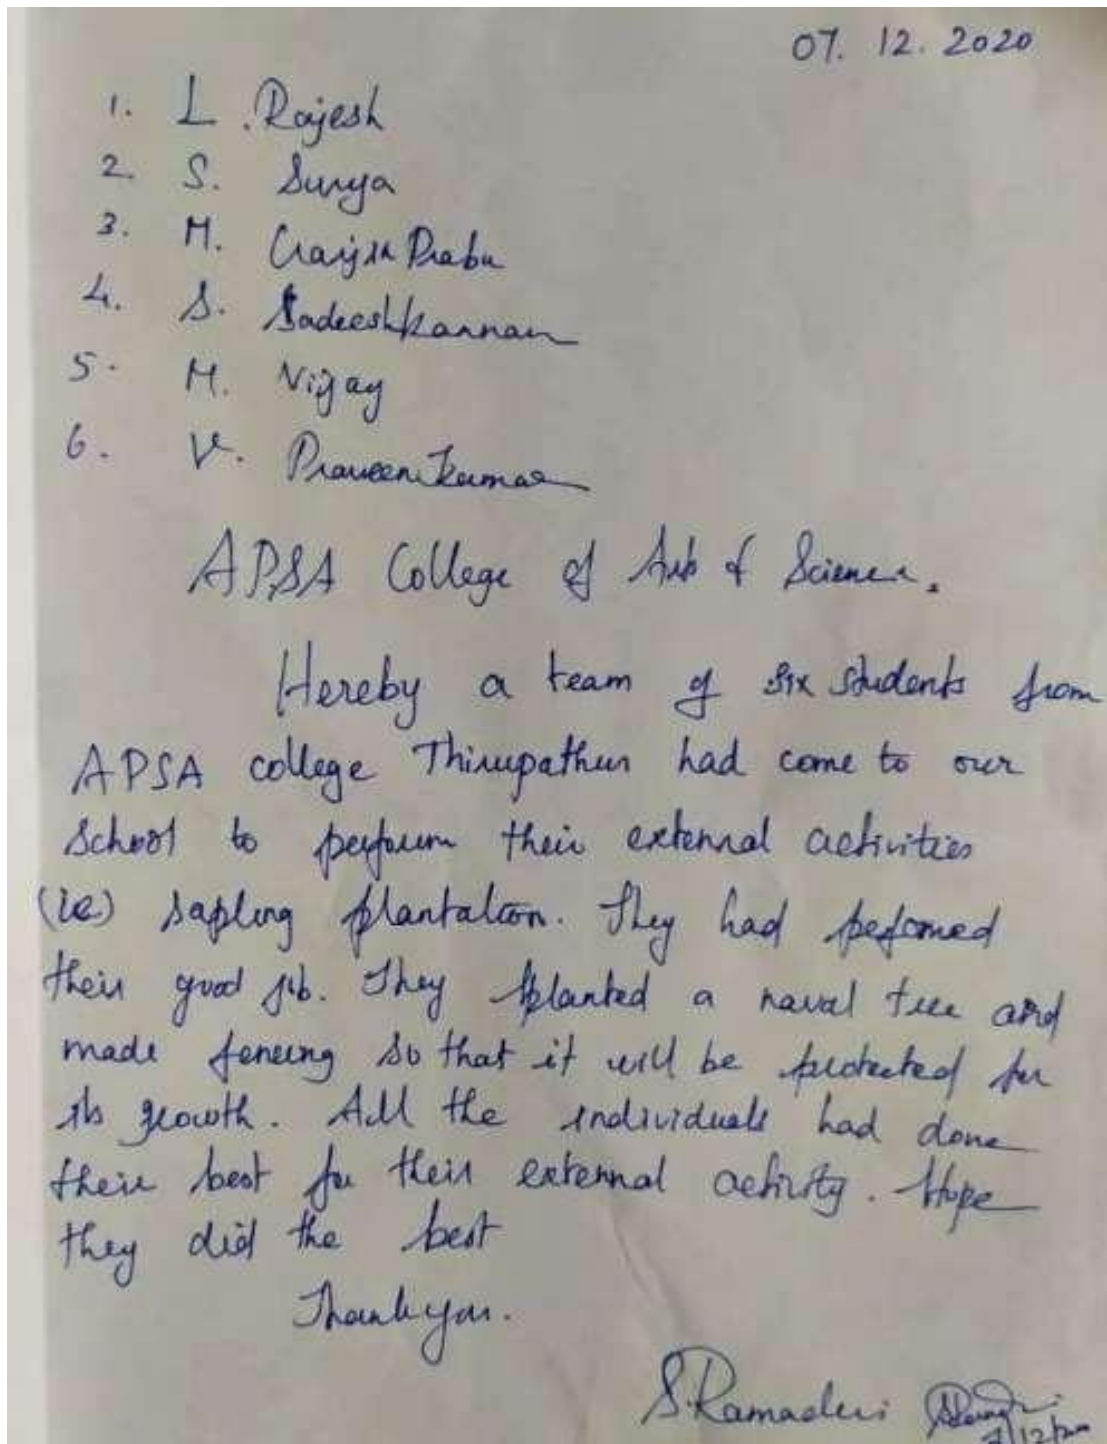 07. 12. 2020
1. L. Rajesh
2. S. Surya
3. M. Prabu
4. S. Sadeeshkannan
5. M. Vijay
6. V. Praveen Kumar
APSA College of Arts & Science.
Hereby a team of six students from
APSA college Thirupathur had come to our
school to perform their external activities
(ie) sapling plantation. They had pefomed
their good job. They planted a naval tree and
made fencing so that it will be protected for
its growth. All the individuals had done
their best for their external activity. Hope
they did the best
Thank you.
S. Ramadevi